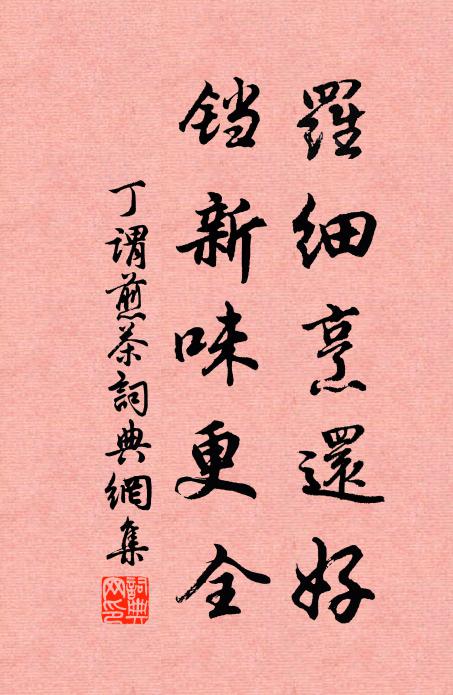 羅細烹還好
铛新味更全
丁謂煎茶詞典網集
詞典网印